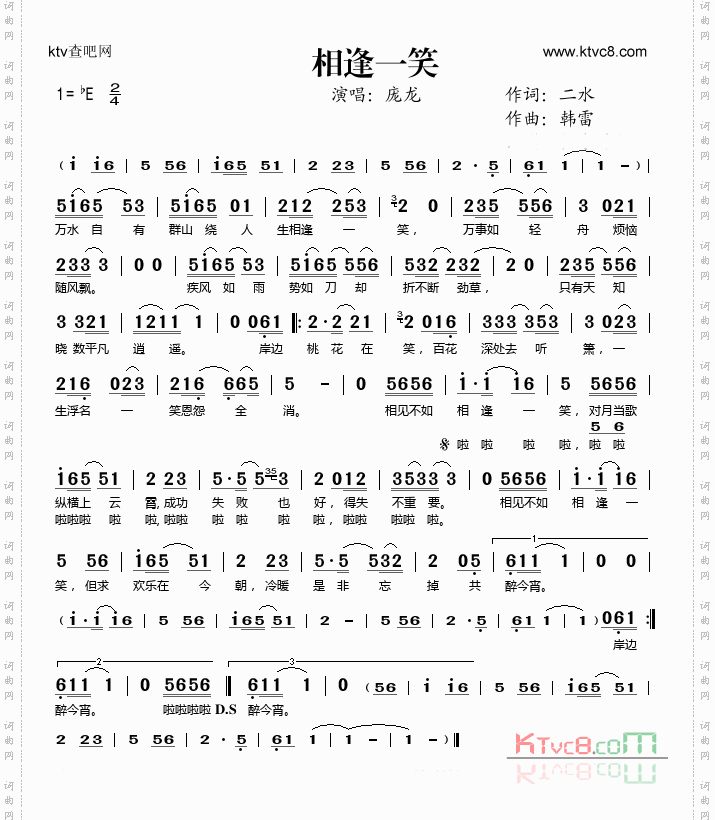 ktv查吧网
www.ktvc8.com
相逢一笑
1=♭E 2/4
演唱：庞龙
作词：二水
作曲：韩雷
( i i6 | 5 56 | i65 51 | 2 23 | 5 56 | 2 · 5 | 61 1 | 1 – ) |
5i65 53 | 5i65 01 | 212 253 | 3 2 0 | 235 556 | 3 021 |
万水 自 有 群山 绕 人 生相逢 一 笑， 万事如 轻 舟 烦恼
233 3 | 0 0 | 5i65 53 | 5i65 556 | 532 232 | 2 0 | 235 556 |
随风飘。 疾风 如 雨 势如 刀 却 折不断 劲草， 只有天 知
3 321 | 1211 1 | 0 061 ‖: 2·2 21 | 3 2 016 | 333 353 | 3 023 |
晓 数平凡 逍 遥。 岸边 桃 花 在 笑，百花 深处去 听 箫，一
216 023 | 216 665 | 5 – | 0 5656 | i·i i6 | 5 5656 |
生浮名 一 笑恩怨 全 消。 相见不如 相 逢 一 笑，对月当歌
5 6
啦 啦 啦 啦，啦 啦
i65 51 | 2 23 | 5·5 5 35 3 | 2 012 | 3533 3 | 0 5656 | i·i i6 |
纵横上 云 霄,成功 失 败 也 好，得失 不重 要。 相见不如 相 逢 一
啦啦啦 啦 啦,啦啦 啦 啦 啦 啦，啦啦 啦啦 啦。
5 56 | i65 51 | 2 23 | 5·5 532 | 2 05 | 1 611 1 | 0 0 |
笑，但求 欢乐在 今 朝，冷暖 是 非 忘 掉 共 醉今宵。
( i·i i6 | 5 56 | i65 51 | 2 – | 5 56 | 2 · 5 | 61 1 | 1 ) 061 :‖
岸边
2 3
611 1 | 0 5656 ‖ 611 1 | 0 (56 | i i6 | 5 56 | i65 51 |
醉今宵。 啦啦啦啦 D.S 醉今宵。
2 23 | 5 56 | 2 · 5 | 61 1 | 1 – | 1 – )‖
KTvc8.com
词曲网